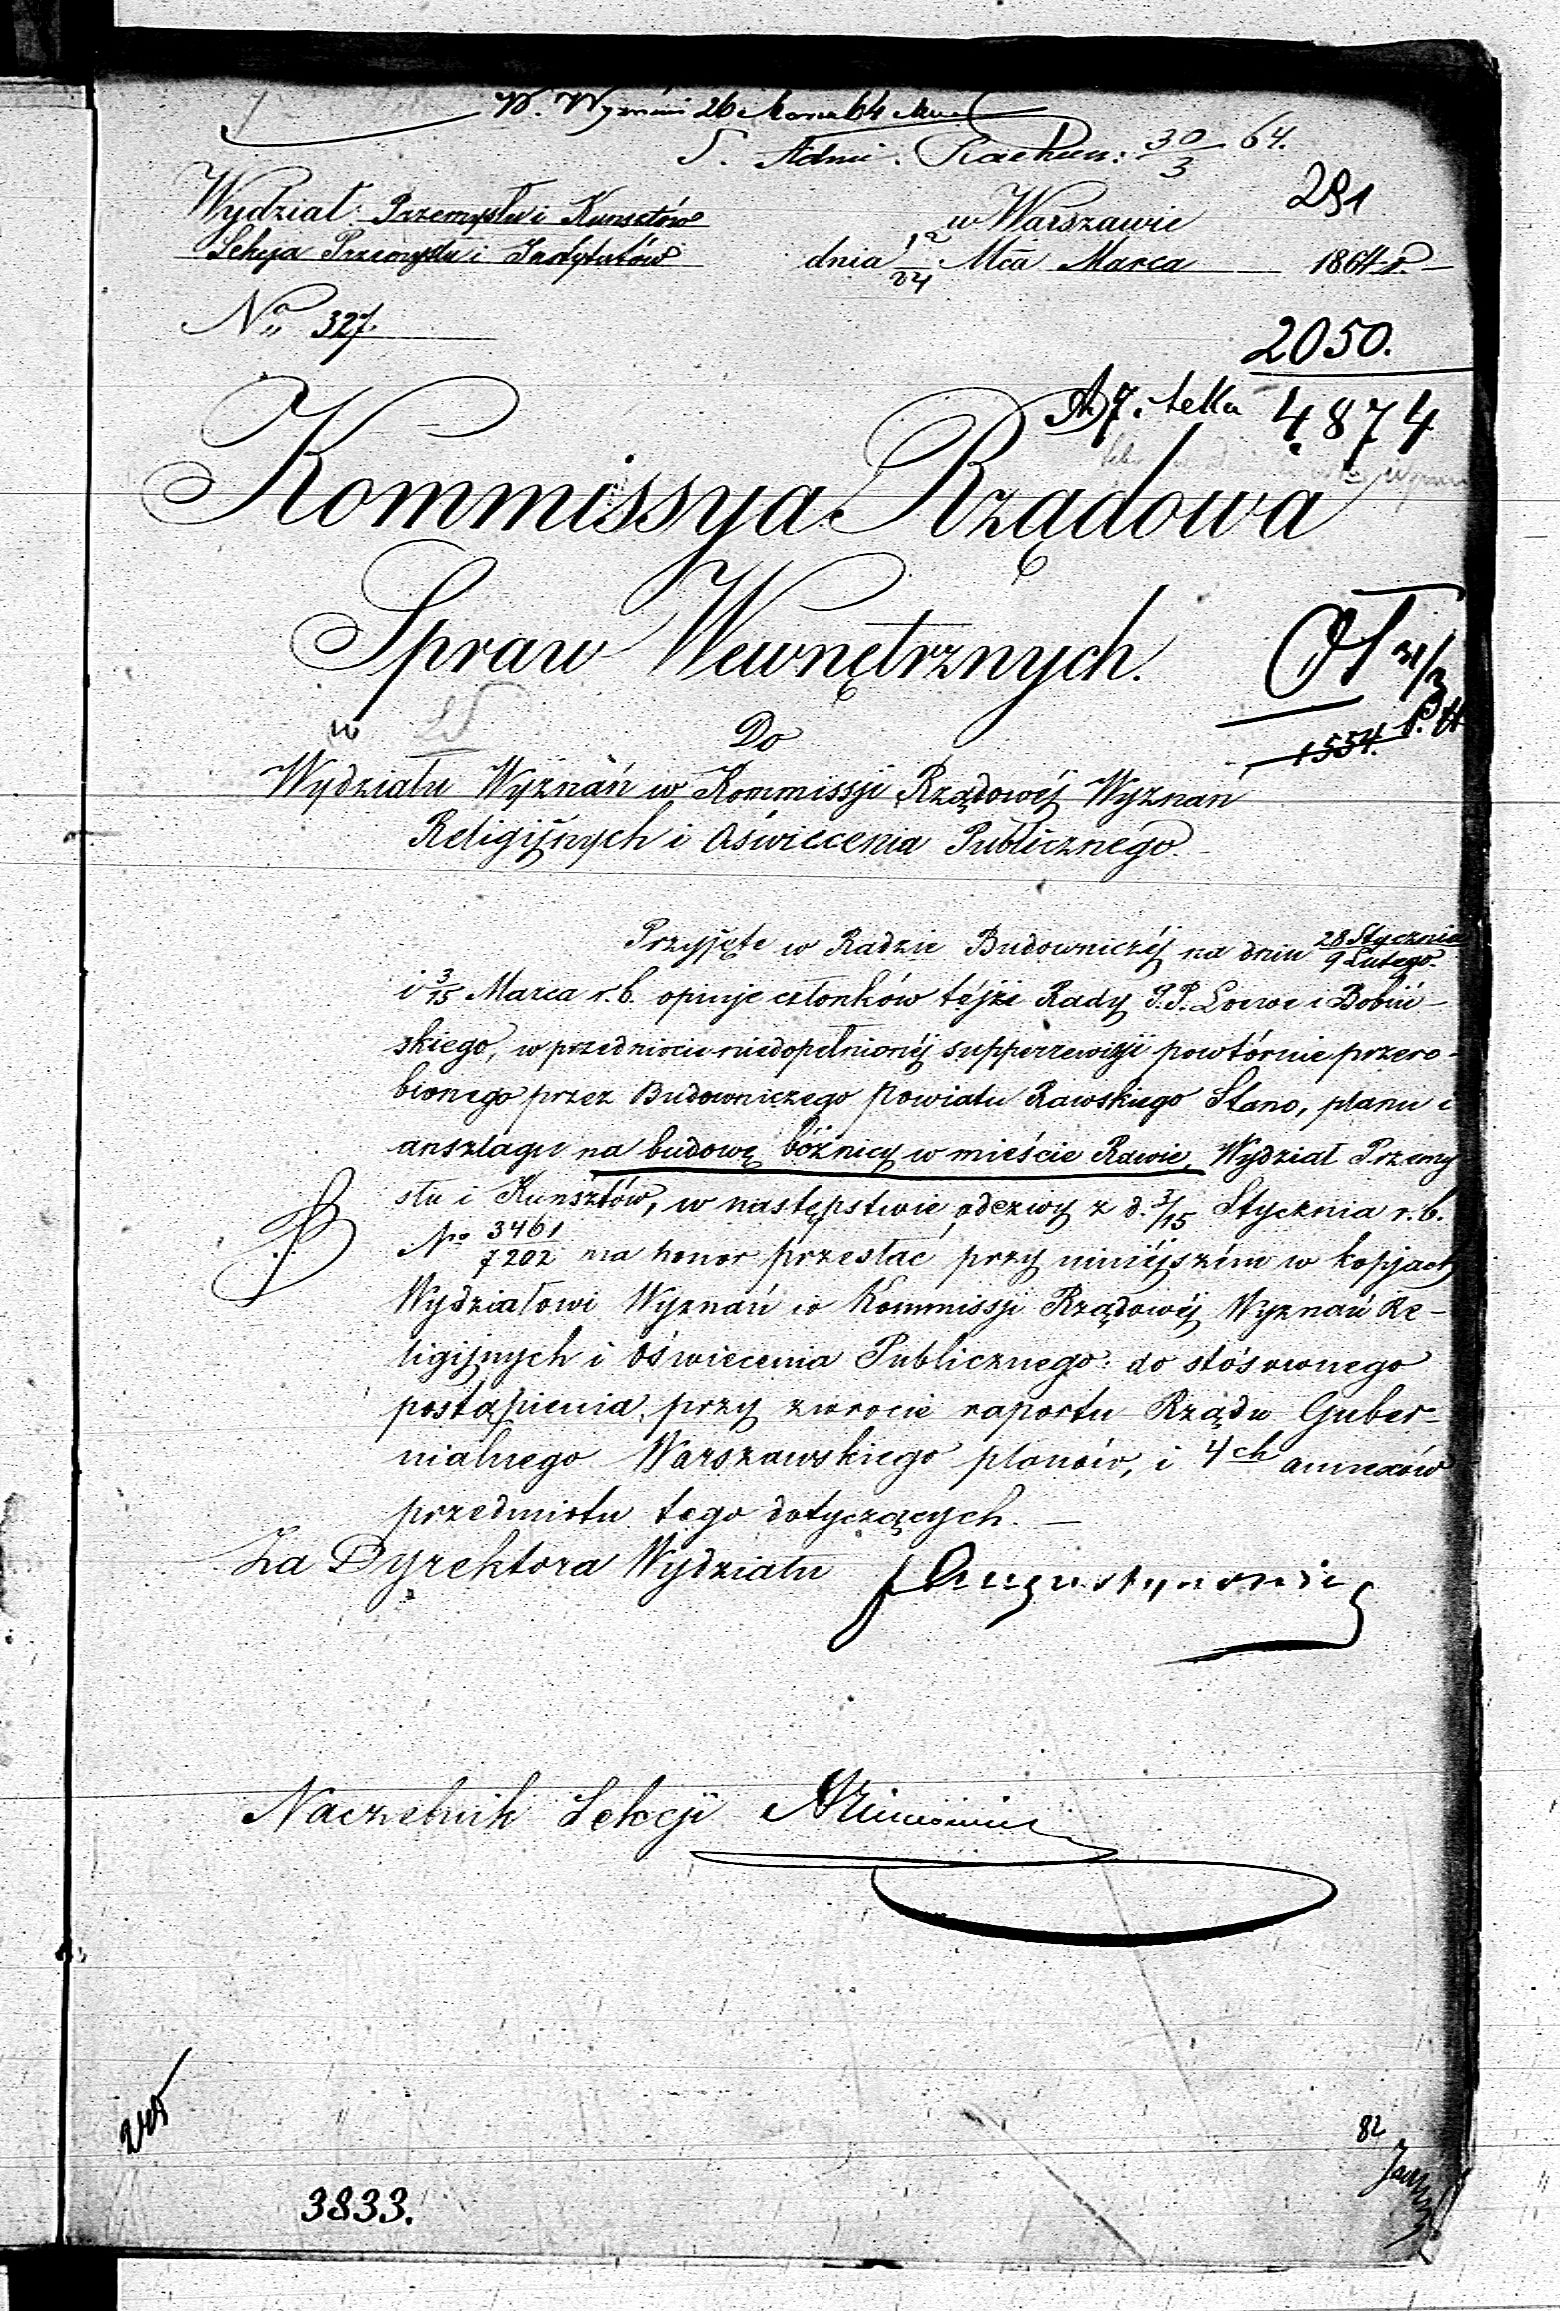 W. Wyznań 26 Marca 64
S. Admi. Rachun: 30/3 64.
291
Wydział Przemysłu i Kunsztów
w Warszawie
Sekcja Przemysłu i Instytutów
dnia 12/24 Mca Marca 1864 r.
No 327.
2050.
teka 4874
Kommissya Rządowa
Spraw Wewnętrznych.
Do
1554.
Wydziału Wyznań w Kommissji Rządowéj Wyznań
Religijnych i Oświecenia Publicznego.
Przyjęte w Radzie Budowniczéj na dniu 28 Stycznia/9 Lutego.
i 3/15 Marca r.b. opinje członków téjże Rady P.P. Loewe i Bobiń-
skiego, w przedmiocie niedopełnionéj superrewizji powtórnie przero-
bionego przez Budowniczego Powiatu Rawskiego Stano, planu i
anszlagu na budowę bóżnicy w mieście Rawie, Wydział Przemy
słu i Kunsztów, w następstwie odezwy z d. 3/15 Stycznia r.b.
No 3461/7202 ma honor przesłać przy niniéjszém w kopjach
Wydziałowi Wyznań w Kommissji Rządowéj Wyznań Re-
ligijnych i Oświecenia Publicznego: do stósownego
postąpienia, przy zwrocie raportu Rządu Guber-
nialnego Warszawskiego planów, i 4ch annexów
przedmiotu tego dotyczących.
Za Dyrektora Wydziału J Augustynowicz
Naczelnik Sekcji
82
3833.